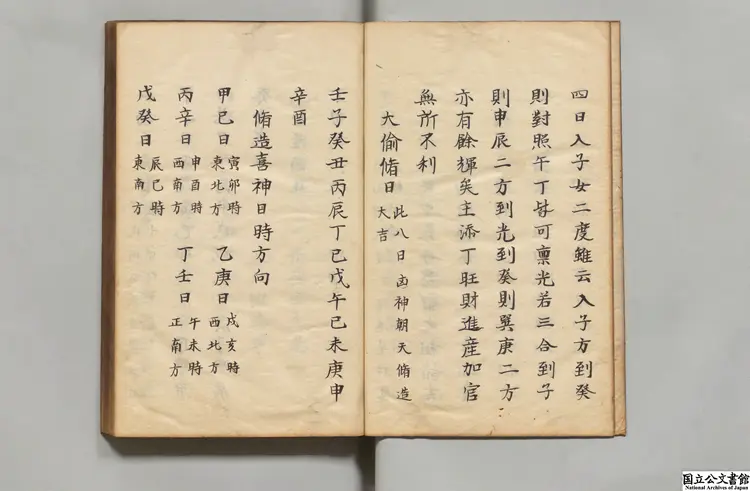 四日入子女二度雖云入子方到癸
則對照午丁皆可稟光若三合到子
則申辰二方到光到癸則巽庚二方
亦有餘輝矣主添丁旺財進産加官
無所不利
大偷脩日 此八日凶神朝天脩造大吉
壬子癸丑丙辰丁巳戊午己未庚申
辛酉
脩造喜神日時方向
甲己日 寅卯時東北方 乙庚日 戌亥時西北方
丙辛日 申酉時西南方 丁壬日 午未時正南方
戊癸日 辰巳時東南方
国立公文書館
National Archives of Japan